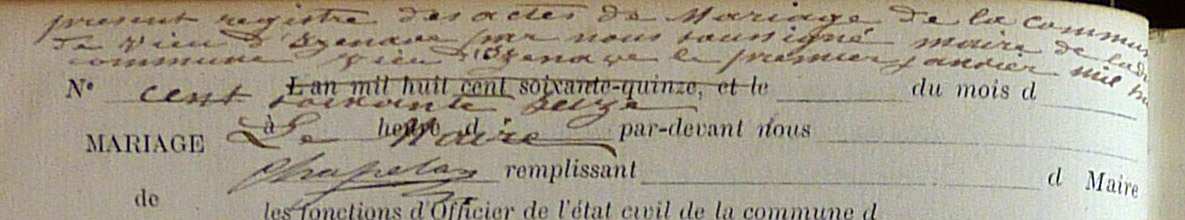 présent registre des actes de Mariage de la commune
de vieu d'Izenave par nous soussigné maire de ladi
commune vieu d'Izenave le premier janvier mil hu
N° cent L'an mil huit cent soixante-quinze, et le du mois d
soixante seize
à heure d par-devant nous
Le Maire
MARIAGE
Chapelas remplissant d Maire
de
les fonctions d'Officier de l'état civil de la commune d